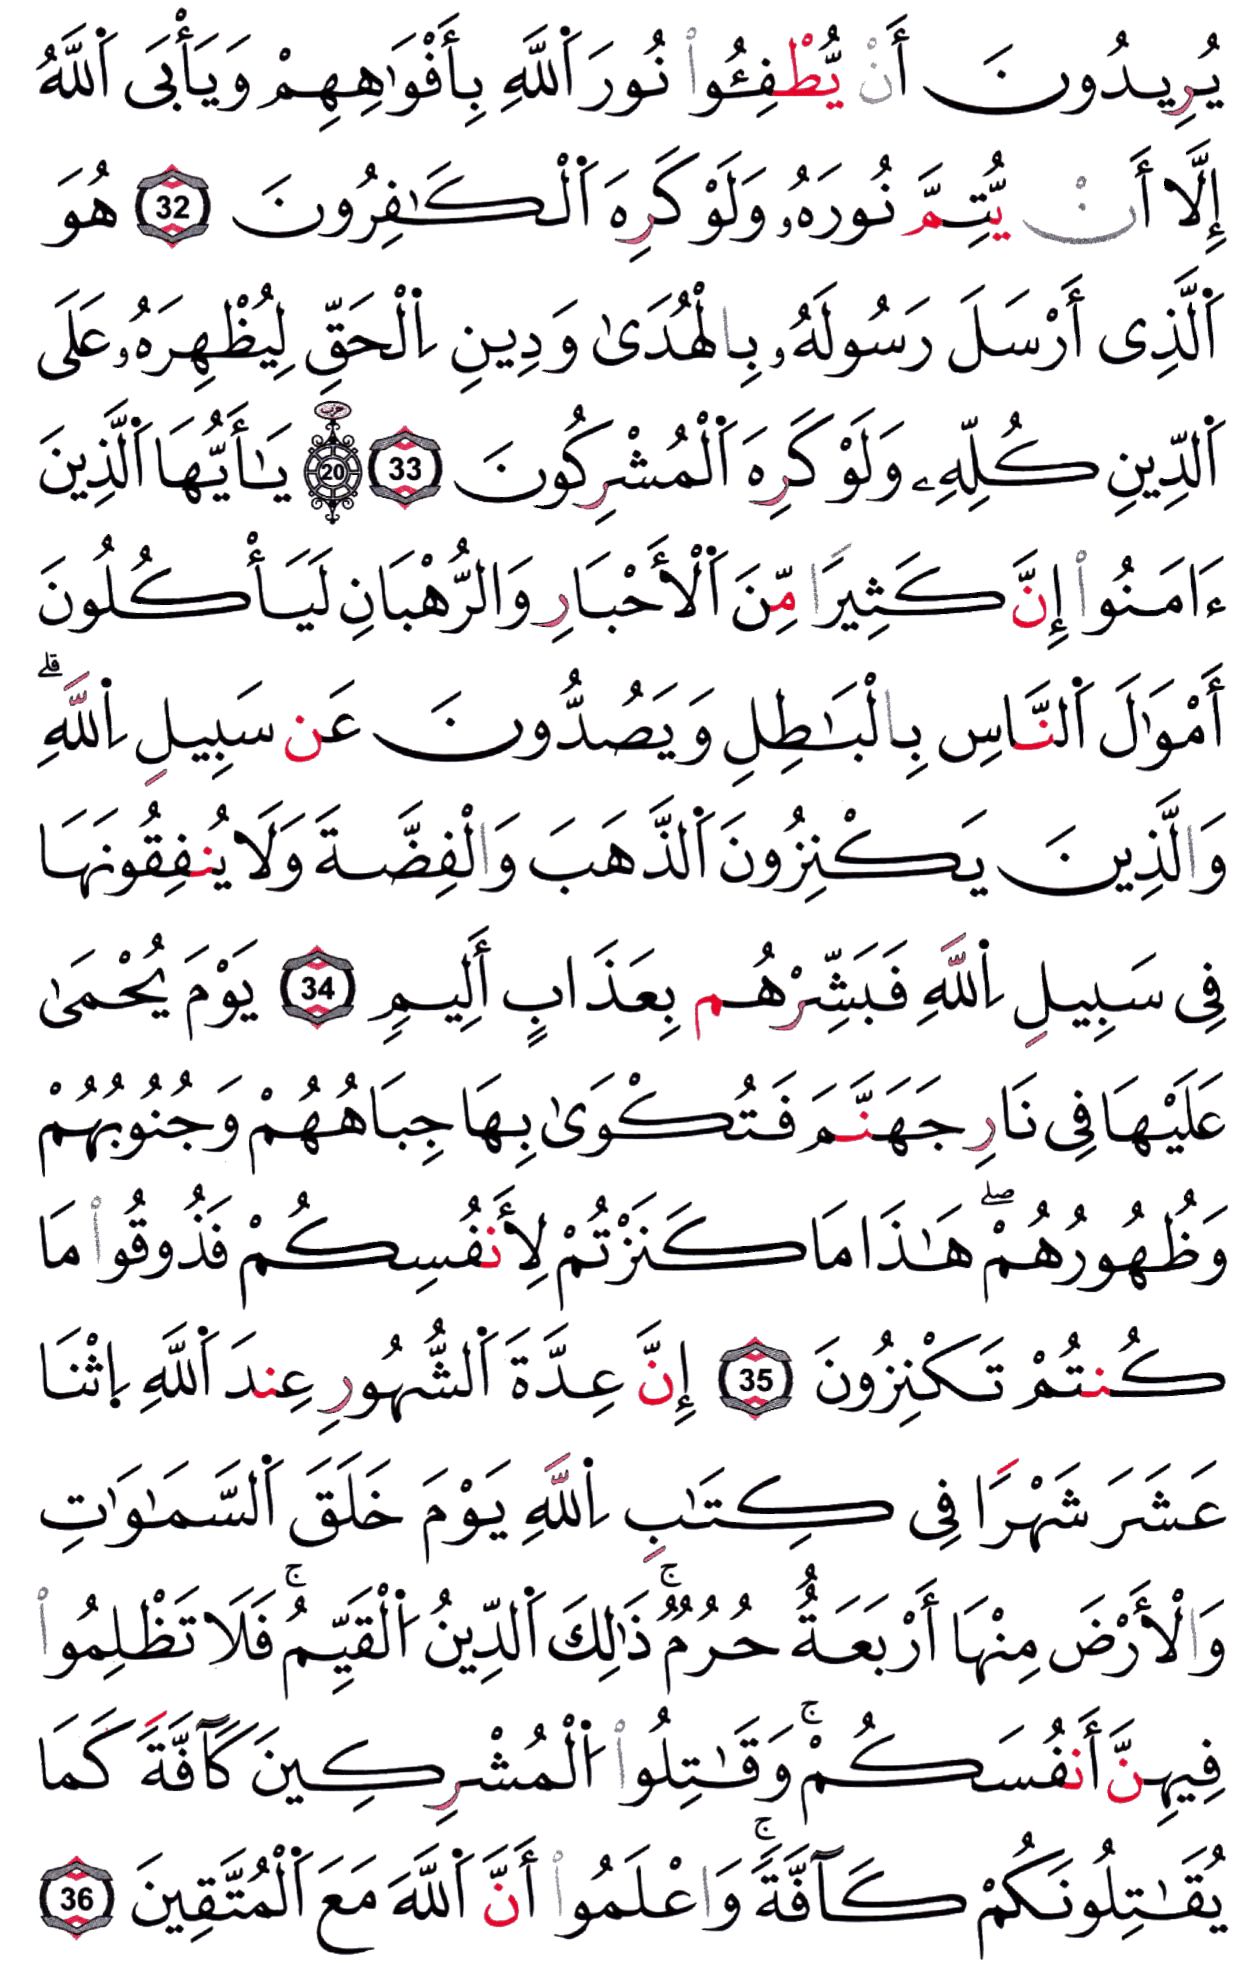 يُرِيدُونَ أَنْ يُّطْفِـُٔوا۟ نُورَ ٱللَّهِ بِأَفْوَٰهِهِمْ وَيَأْبَى ٱللَّهُ
إِلَّا أَنْ يُّتِمَّ نُورَهُۥ وَلَوْ كَرِهَ ٱلْكَٰفِرُونَ 32 هُوَ
ٱلَّذِى أَرْسَلَ رَسُولَهُۥ بِالْهُدَىٰ وَدِينِ اِ۬لْحَقِّ لِيُظْهِرَهُۥ عَلَى
ٱلدِّينِ كُلِّهِۦ وَلَوْ كَرِهَ ٱلْمُشْرِكُونَ 33 حزب 20 يَٰأَيُّهَا ٱلَّذِينَ
ءَامَنُوا۟ إِنَّ كَثِيرًا مِّنَ ٱلْأَحْبَارِ وَالرُّهْبَانِ لَيَأْكُلُونَ
أَمْوَٰلَ ٱلنَّاسِ بِالْبَٰطِلِ وَيَصُدُّونَ عَن سَبِيلِ اِ۬للَّهِ ۗ
وَالَّذِينَ يَكْنِزُونَ ٱلذَّهَبَ وَالْفِضَّةَ وَلَا يُنفِقُونَهَا
فِى سَبِيلِ اِ۬للَّهِ فَبَشِّرْهُم بِعَذَابٍ أَلِيمٍ 34 يَوْمَ يُحْمَىٰ
عَلَيْهَا فِى نَارِ جَهَنَّمَ فَتُكْوَىٰ بِهَا جِبَاهُهُمْ وَجُنُوبُهُمْ
وَظُهُورُهُمْ ۖ هَٰذَا مَا كَنَزْتُمْ لِأَنفُسِكُمْ فَذُوقُوا۟ مَا
كُنتُمْ تَكْنِزُونَ 35 إِنَّ عِدَّةَ ٱلشُّهُورِ عِندَ ٱللَّهِ اِ۪ثْنَا
عَشَرَ شَهْرًا فِى كِتَٰبِ اِ۬للَّهِ يَوْمَ خَلَقَ ٱلسَّمَٰوَٰتِ
وَالْأَرْضَ مِنْهَا أَرْبَعَةٌ حُرُمٌ ۚ ذَٰلِكَ ٱلدِّينُ اُ۬لْقَيِّمُ ۚ فَلَا تَظْلِمُوا۟
فِيهِنَّ أَنفُسَكُمْ ۚ وَقَٰتِلُوا۟ اُ۬لْمُشْرِكِينَ كَآفَّةً كَمَا
يُقَٰتِلُونَكُمْ كَآفَّةً ۚ وَاعْلَمُوا۟ أَنَّ ٱللَّهَ مَعَ ٱلْمُتَّقِينَ 36